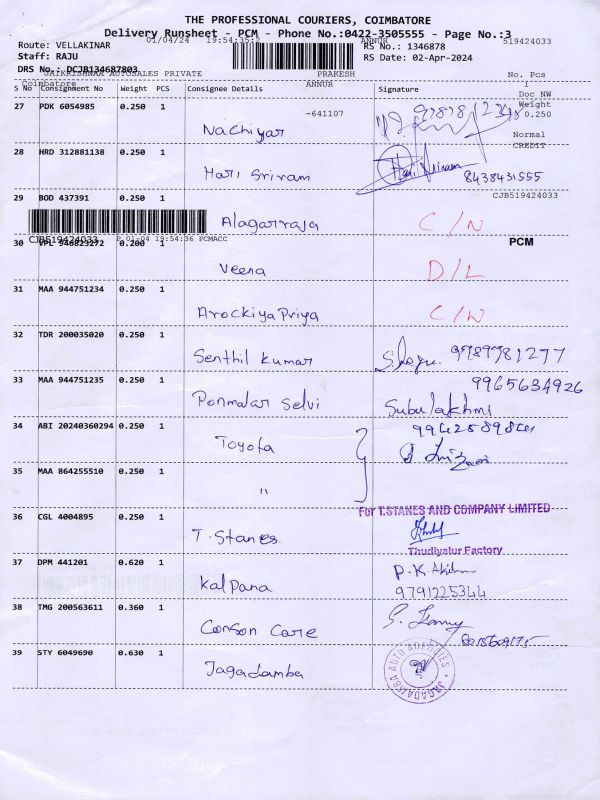 THE PROFESSIONAL COURIERS, COIMBATORE
Delivery Runsheet - PCM - Phone No.:0422-3505555 - Page No.:3
01/04/24 19:54:35:2 ANNUR 519424033
Route: VELLAKINAR RS No.: 1346878
Staff: RAJU RS Date: 02-Apr-2024
DRS No.: DCJB134687803
JAIKRISHNAA AUTOSALES PRIVATE PRAKESH No. Pcs
Coimbatore ANNUR 1
Doc NW
S No Consignment No Weight PCS Consignee Details Signature
Weight
27 PDK 6054985 0.250 1 Nachiyar -641107 0.250
Normal
CREDIT
28 HRD 312881138 0.250 1 Hari Sriram 8438431555
29 BOD 437391 0.250 1 Alagarraja C/N CJB519424033
CJB519424033 01-04 19:54:36 PCMACC PCM
30 VPL 946823272 0.200 1 Veena D/L
31 MAA 944751234 0.250 1 Arockiya Priya C/N
32 TDR 200035020 0.250 1 Senthil Kumar 9789781277
33 MAA 944751235 0.250 1 Ponmalar Selvi 9965634926
Subulakhmi
34 ABI 20240360294 0.250 1 Toyota
35 MAA 864255510 0.250 1 "
For T.STANES AND COMPANY LIMITED
36 CGL 4004895 0.250 1 T. Stanes
Thudiyalur Factory
37 DPM 441201 0.620 1 Kalpana P.K.
9791225344
38 TMG 200563611 0.360 1 Conson Care
39 STY 6049690 0.630 1 Jagadamba
JAGADAMBA AUTO AGENCIES